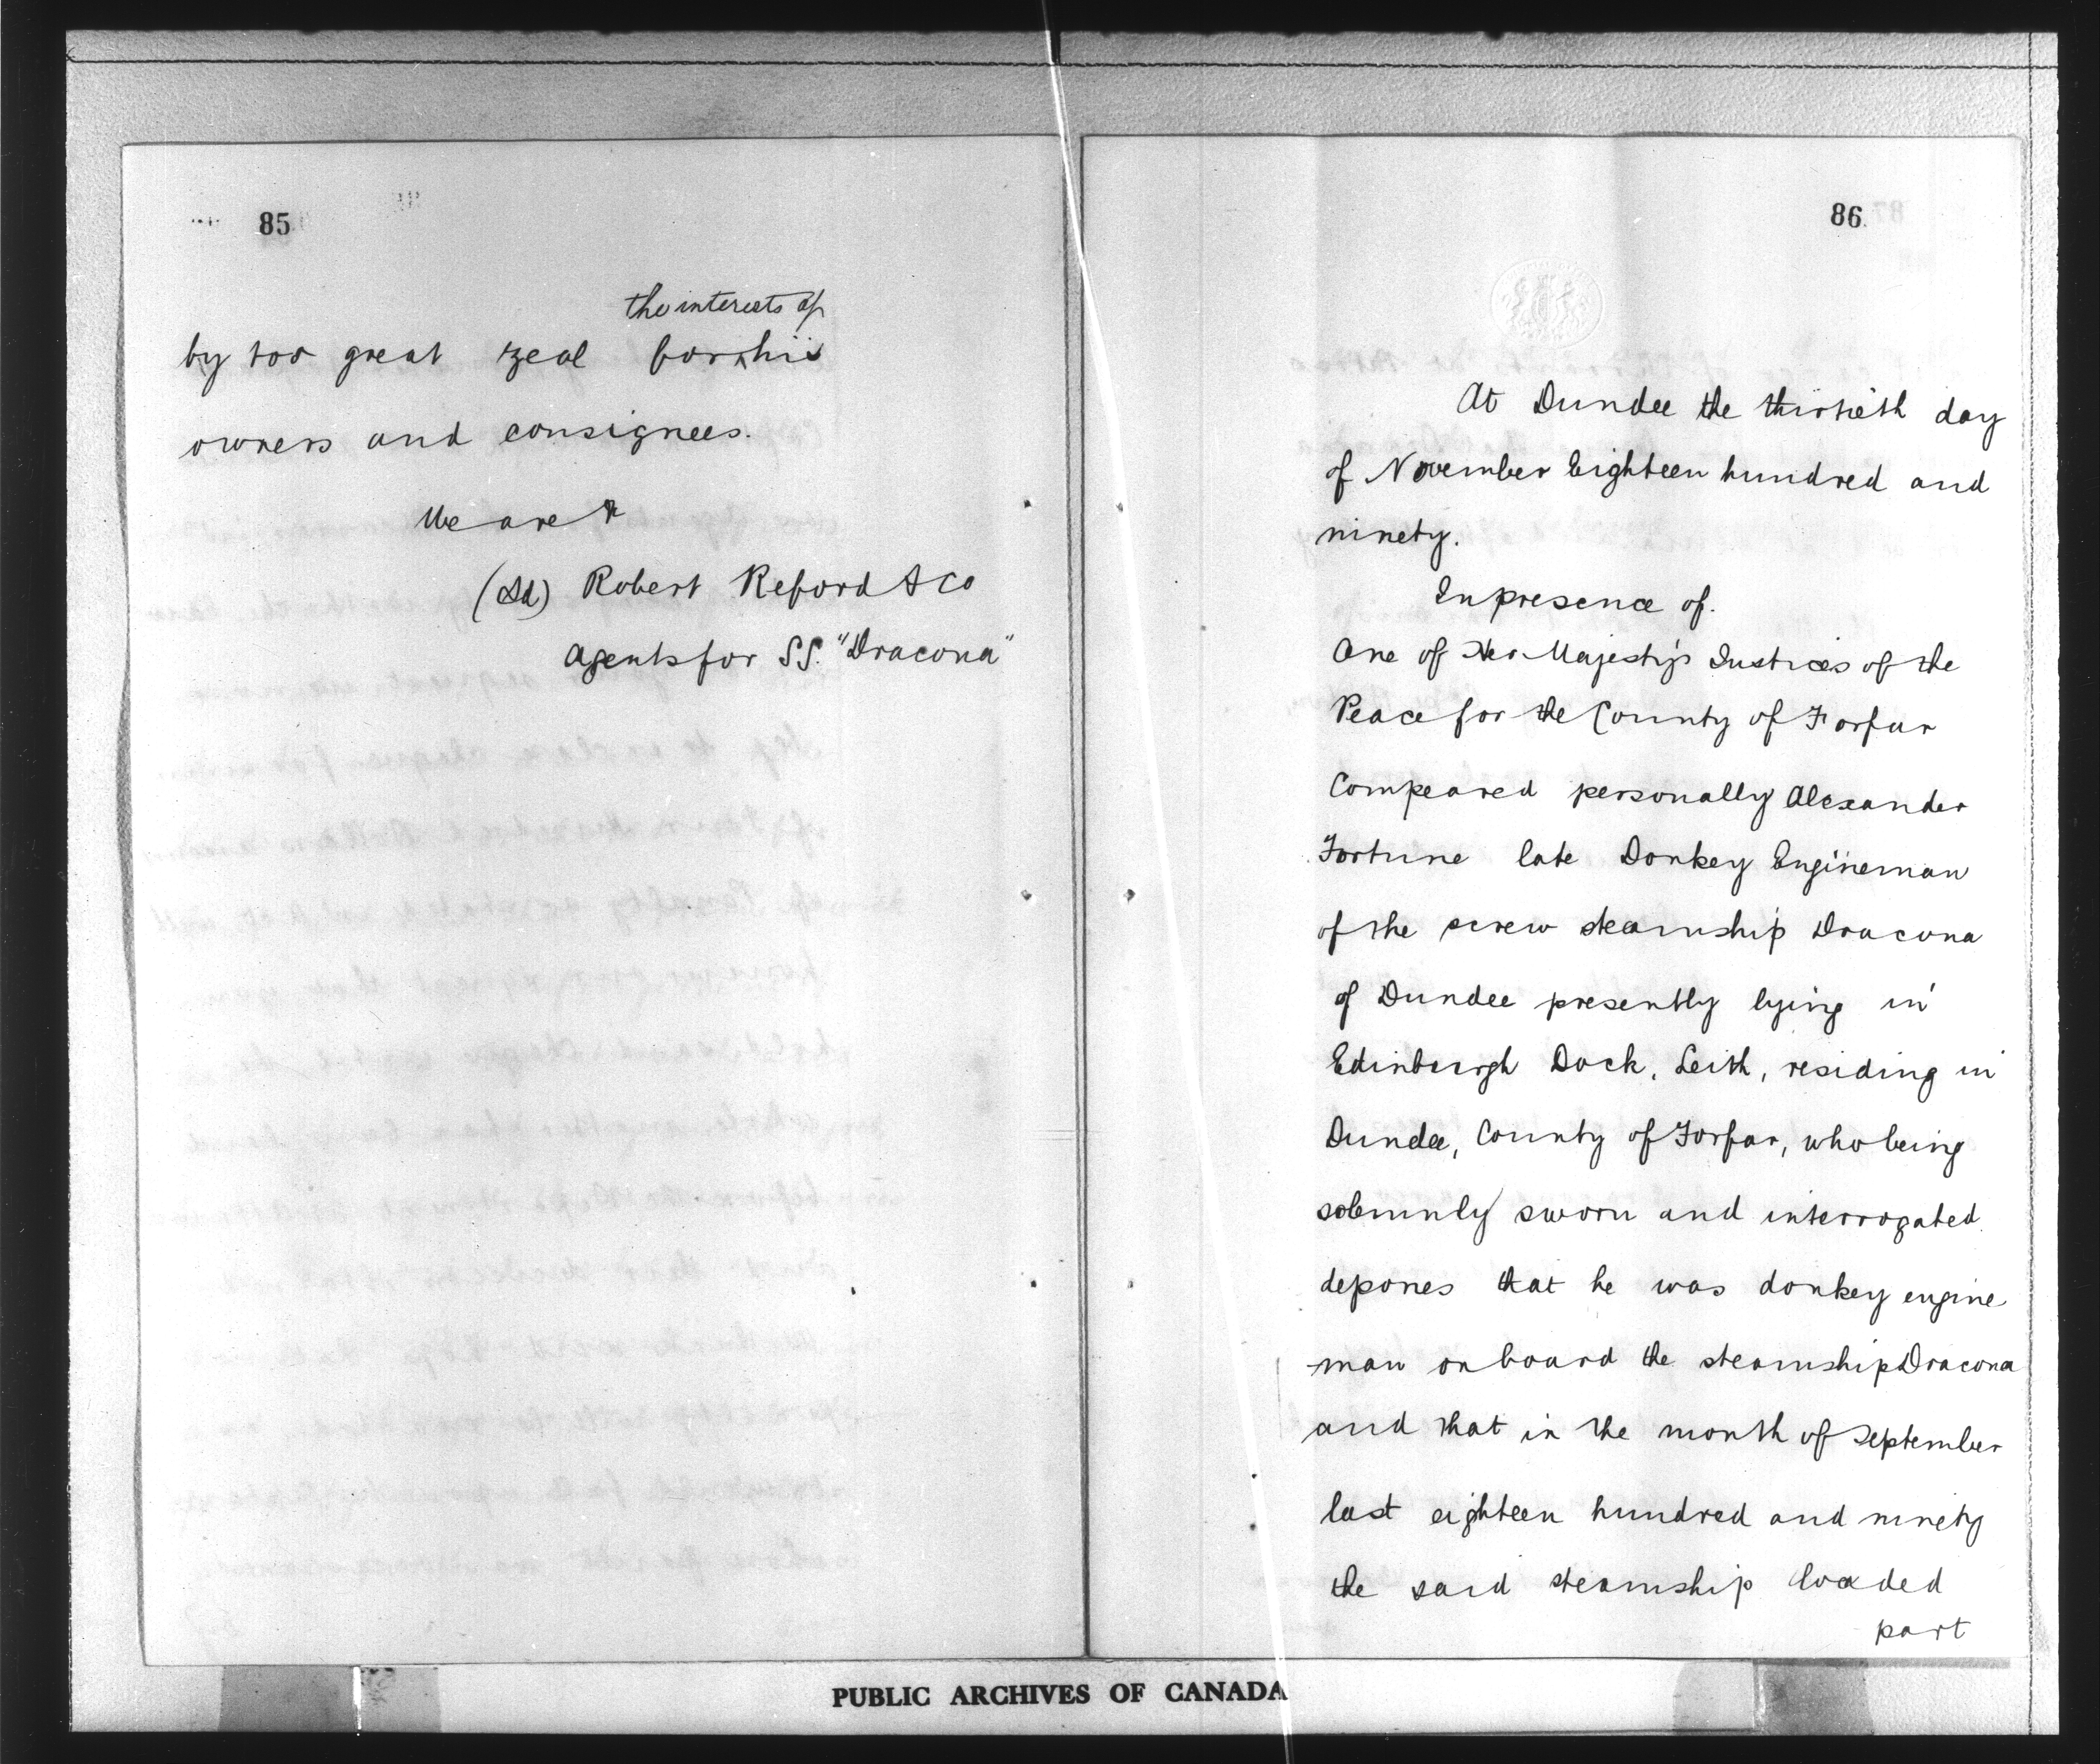 85
the interests of
by too great zeal for ^ his
owners and consignees.
We are &
(Sd) Robert Reford & Co
Agents for SS. "Dracona"
86
At Dundee the thirtieth day
of November Eighteen hundred and
ninety.
In presence of.
One of Her Majesty's Justices of the
Peace for the County of Forfar
Compeared personally Alexander
Fortune late Donkey Engineman
of the screw steamship Dracona
of Dundee presently lying in
Edinburgh Dock, Leith, residing in
Dundee, County of Forfar, who being
solemnly sworn and interrogated
depones that he was donkey engine
-man on board the steamship Dracona
and that in the month of September
last eighteen hundred and ninety
the said steamship loaded
part
PUBLIC ARCHIVES OF CANADA